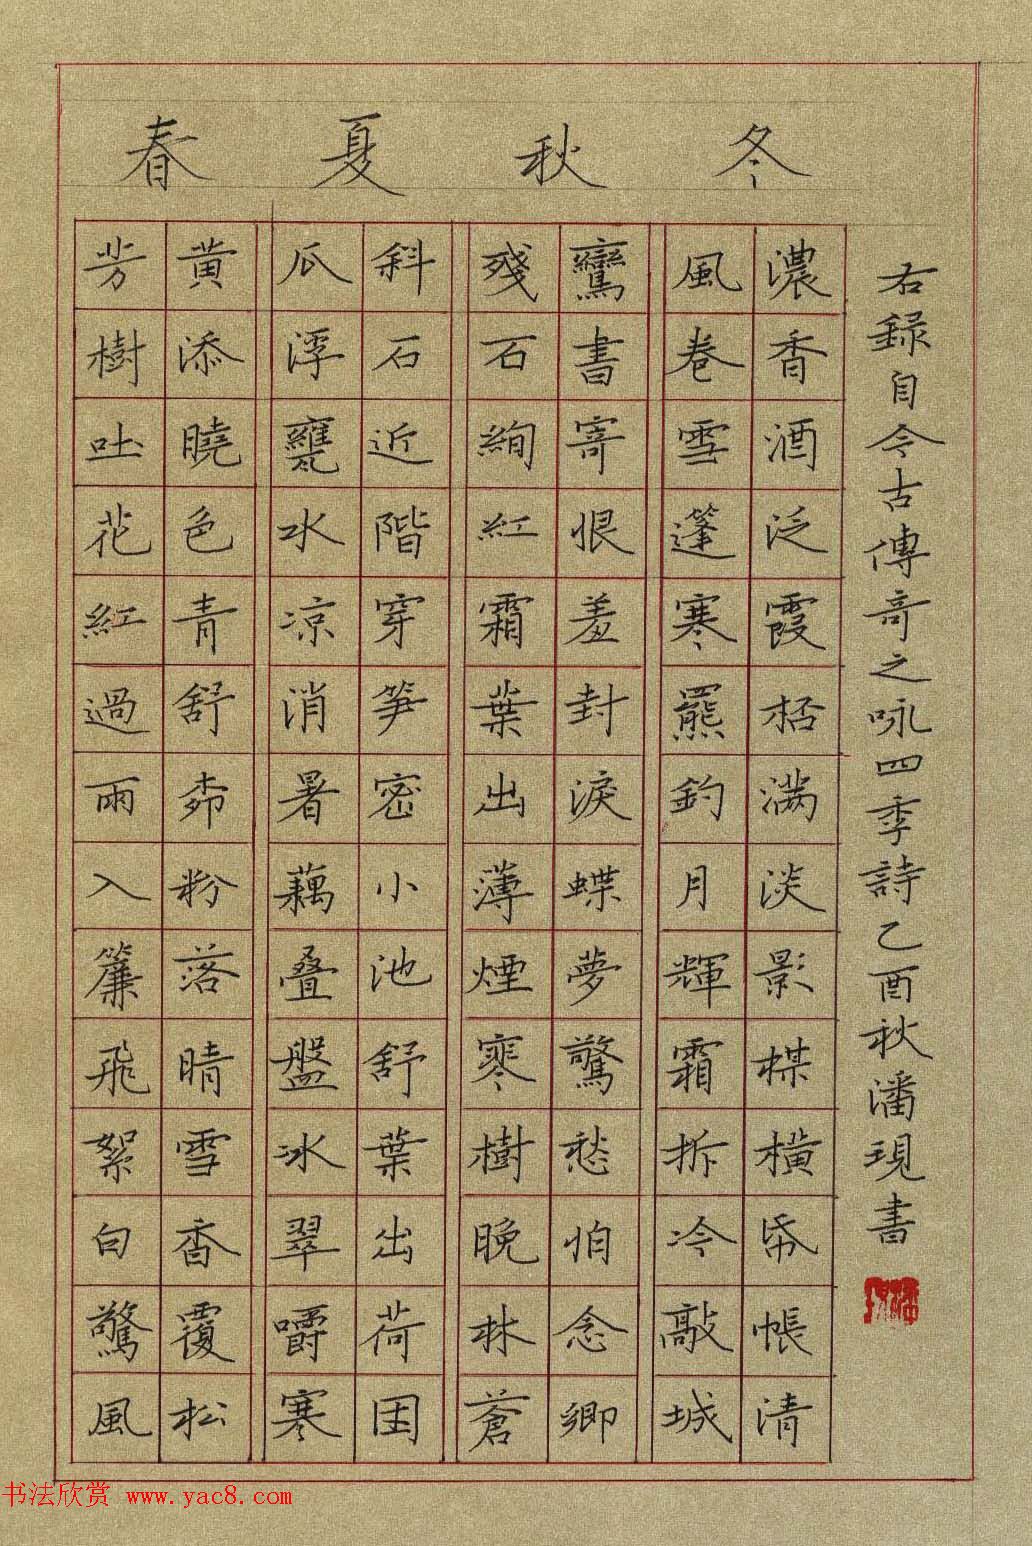 春 夏 秋 冬
芳樹吐花紅過雨入簾飛絮白驚風
黃添曉色青舒桺粉落晴雪香覆松
瓜浮甕水凉消暑藕叠盤冰翠嚼寒
斜石近階穿笋密小池舒葉出荷团
殘石絢紅霜葉出薄煙寒樹晚林蒼
鸞書寄恨羞封淚蝶夢驚愁怕念鄉
風卷雪篷寒羆釣月輝霜拆冷敲城
濃香酒泛霞桮滿淡影楳橫帋帳清
右録自今古傳奇之咏四季詩乙酉秋潘現書
书法欣赏 www.yac8.com